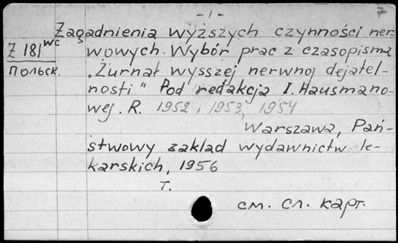 -1-
7
Zagadnienia wyższych czynności ner
Z 181 wc
wowych. Wybór prac z czasopisma
Польск.
„Żurnał wysszej nerwnoj dejatel-
nosti" Pod redakcja I. Hausmano-
wej. R. 1952 i 1953, 1954
Warszawa, Pań-
stwowy zakład wydawnictw le-
karskich, 1956
т.
см. сл. карт.